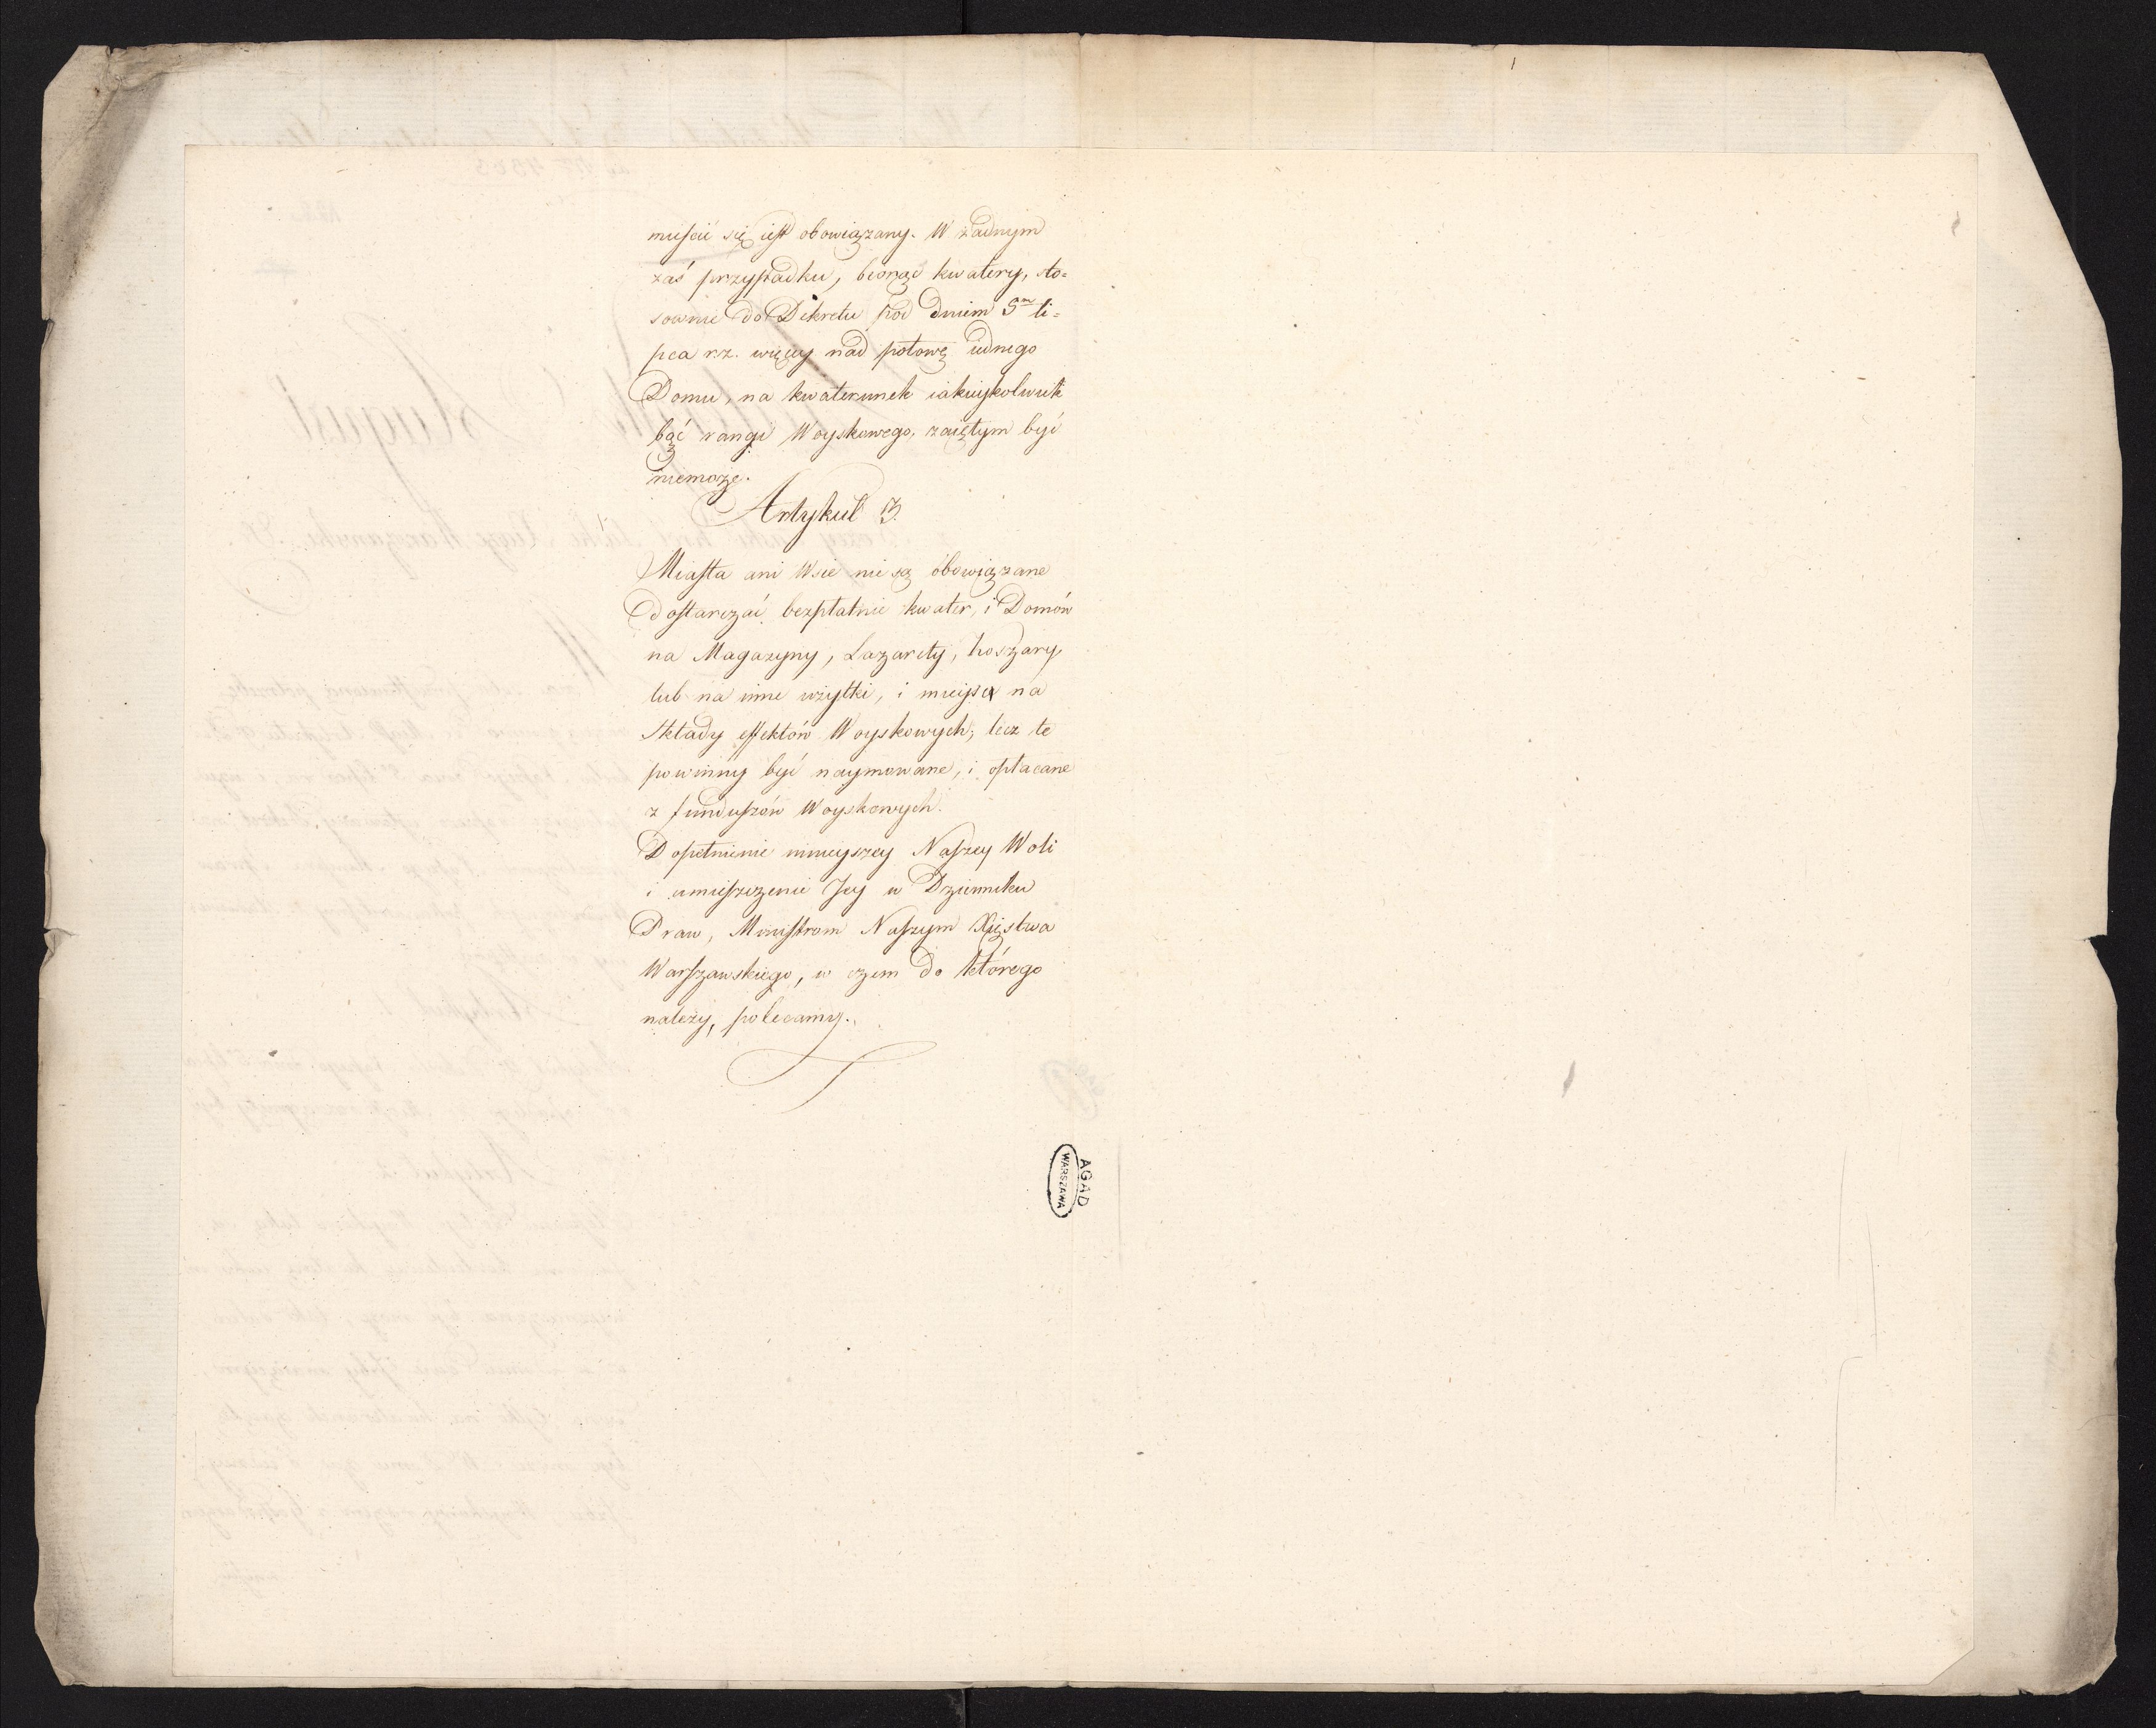 mieſcić się ieſt obowiązany. W żadnym
zaś przypadku, biorąc kwatery, sto=
sownie do Dekretu pod dniem 5m li=
pca r.z. więcey nad połowę iednego
Domu, na kwaterunek iakieykolwiek
bąć rangi Woyskowego, zaiętym być
niemoże.
Artykuł 3.
Miaſta ani Wsie nie są obowiązane
doſtarczać bezpłatnie kwater, i Domów
na Magazyny, Lazarety, koszary,
lub na inne użytki, i mieysca na
składy effektów Woyskowych; lecz te
powinny być naymowane, i opłacane
z funduſzów Woyskowych.
Dopełnienie ninieyszey Naſzey Woli
i umieſzczenie Jey w Dzienniku
Praw, Miniſtrom Naſzym Xięstwa
Warſzawskiego, w czem do którego
należy, polecamy.
AGAD
WARSZAWA